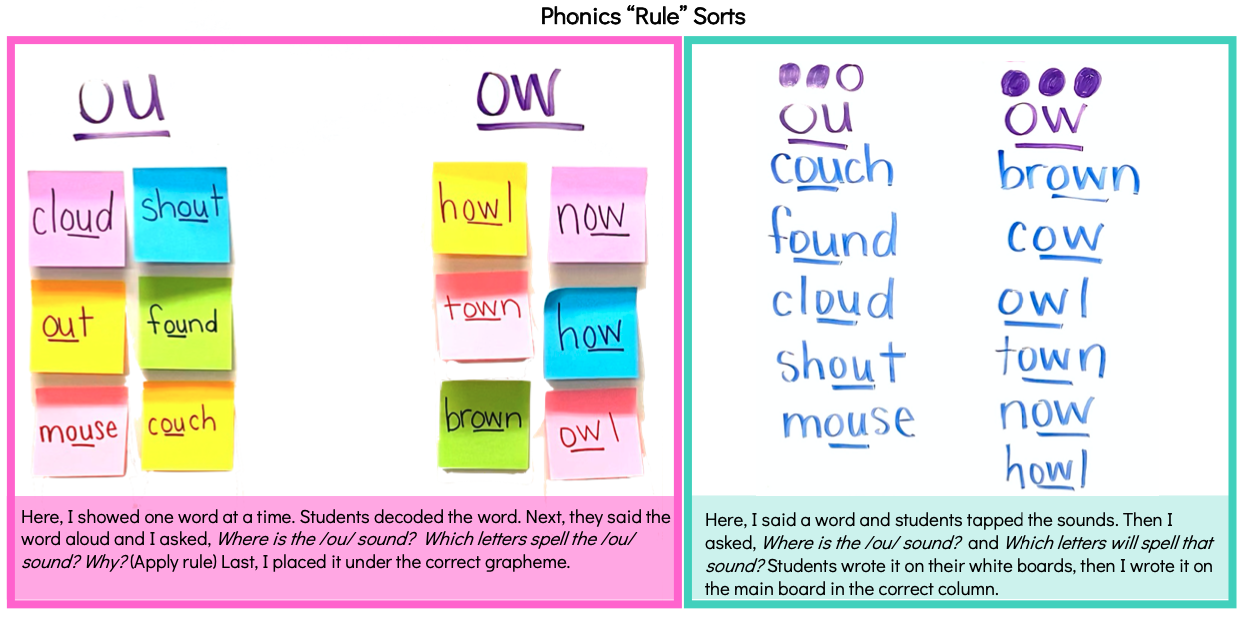 Phonics “Rule” Sorts
ou
ow
cloud
shout
out
found
mouse
couch
howl
now
town
how
brown
owl
Here, I showed one word at a time. Students decoded the word. Next, they said the
word aloud and I asked, Where is the /ou/ sound? Which letters spell the /ou/
sound? Why? (Apply rule) Last, I placed it under the correct grapheme.
ou
couch
found
cloud
shout
mouse
ow
brown
cow
owl
town
now
howl
Here, I said a word and students tapped the sounds. Then I
asked, Where is the /ou/ sound? and Which letters will spell that
sound? Students wrote it on their white boards, then I wrote it on
the main board in the correct column.